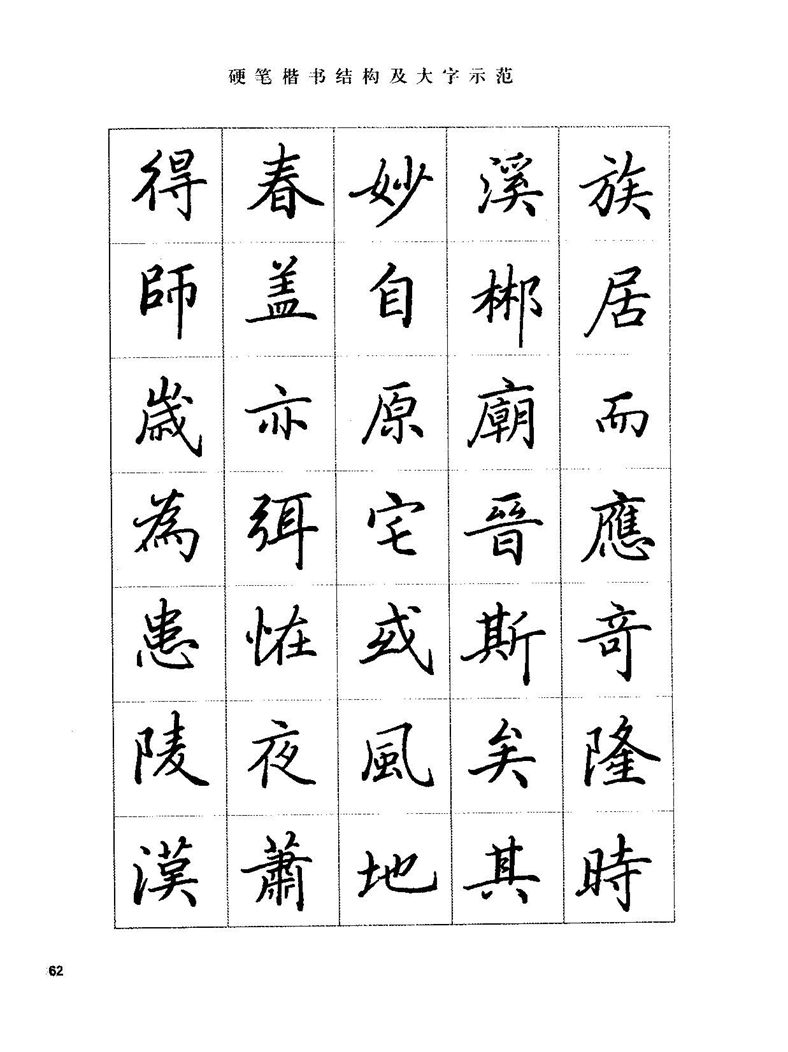 硬笔楷书结构及大字示范
族居而應竒隆時
溪郴廟晉斯矣其
妙自原宅或風地
春盖亦弭恠夜蕭
得師歲為患陵漢
62